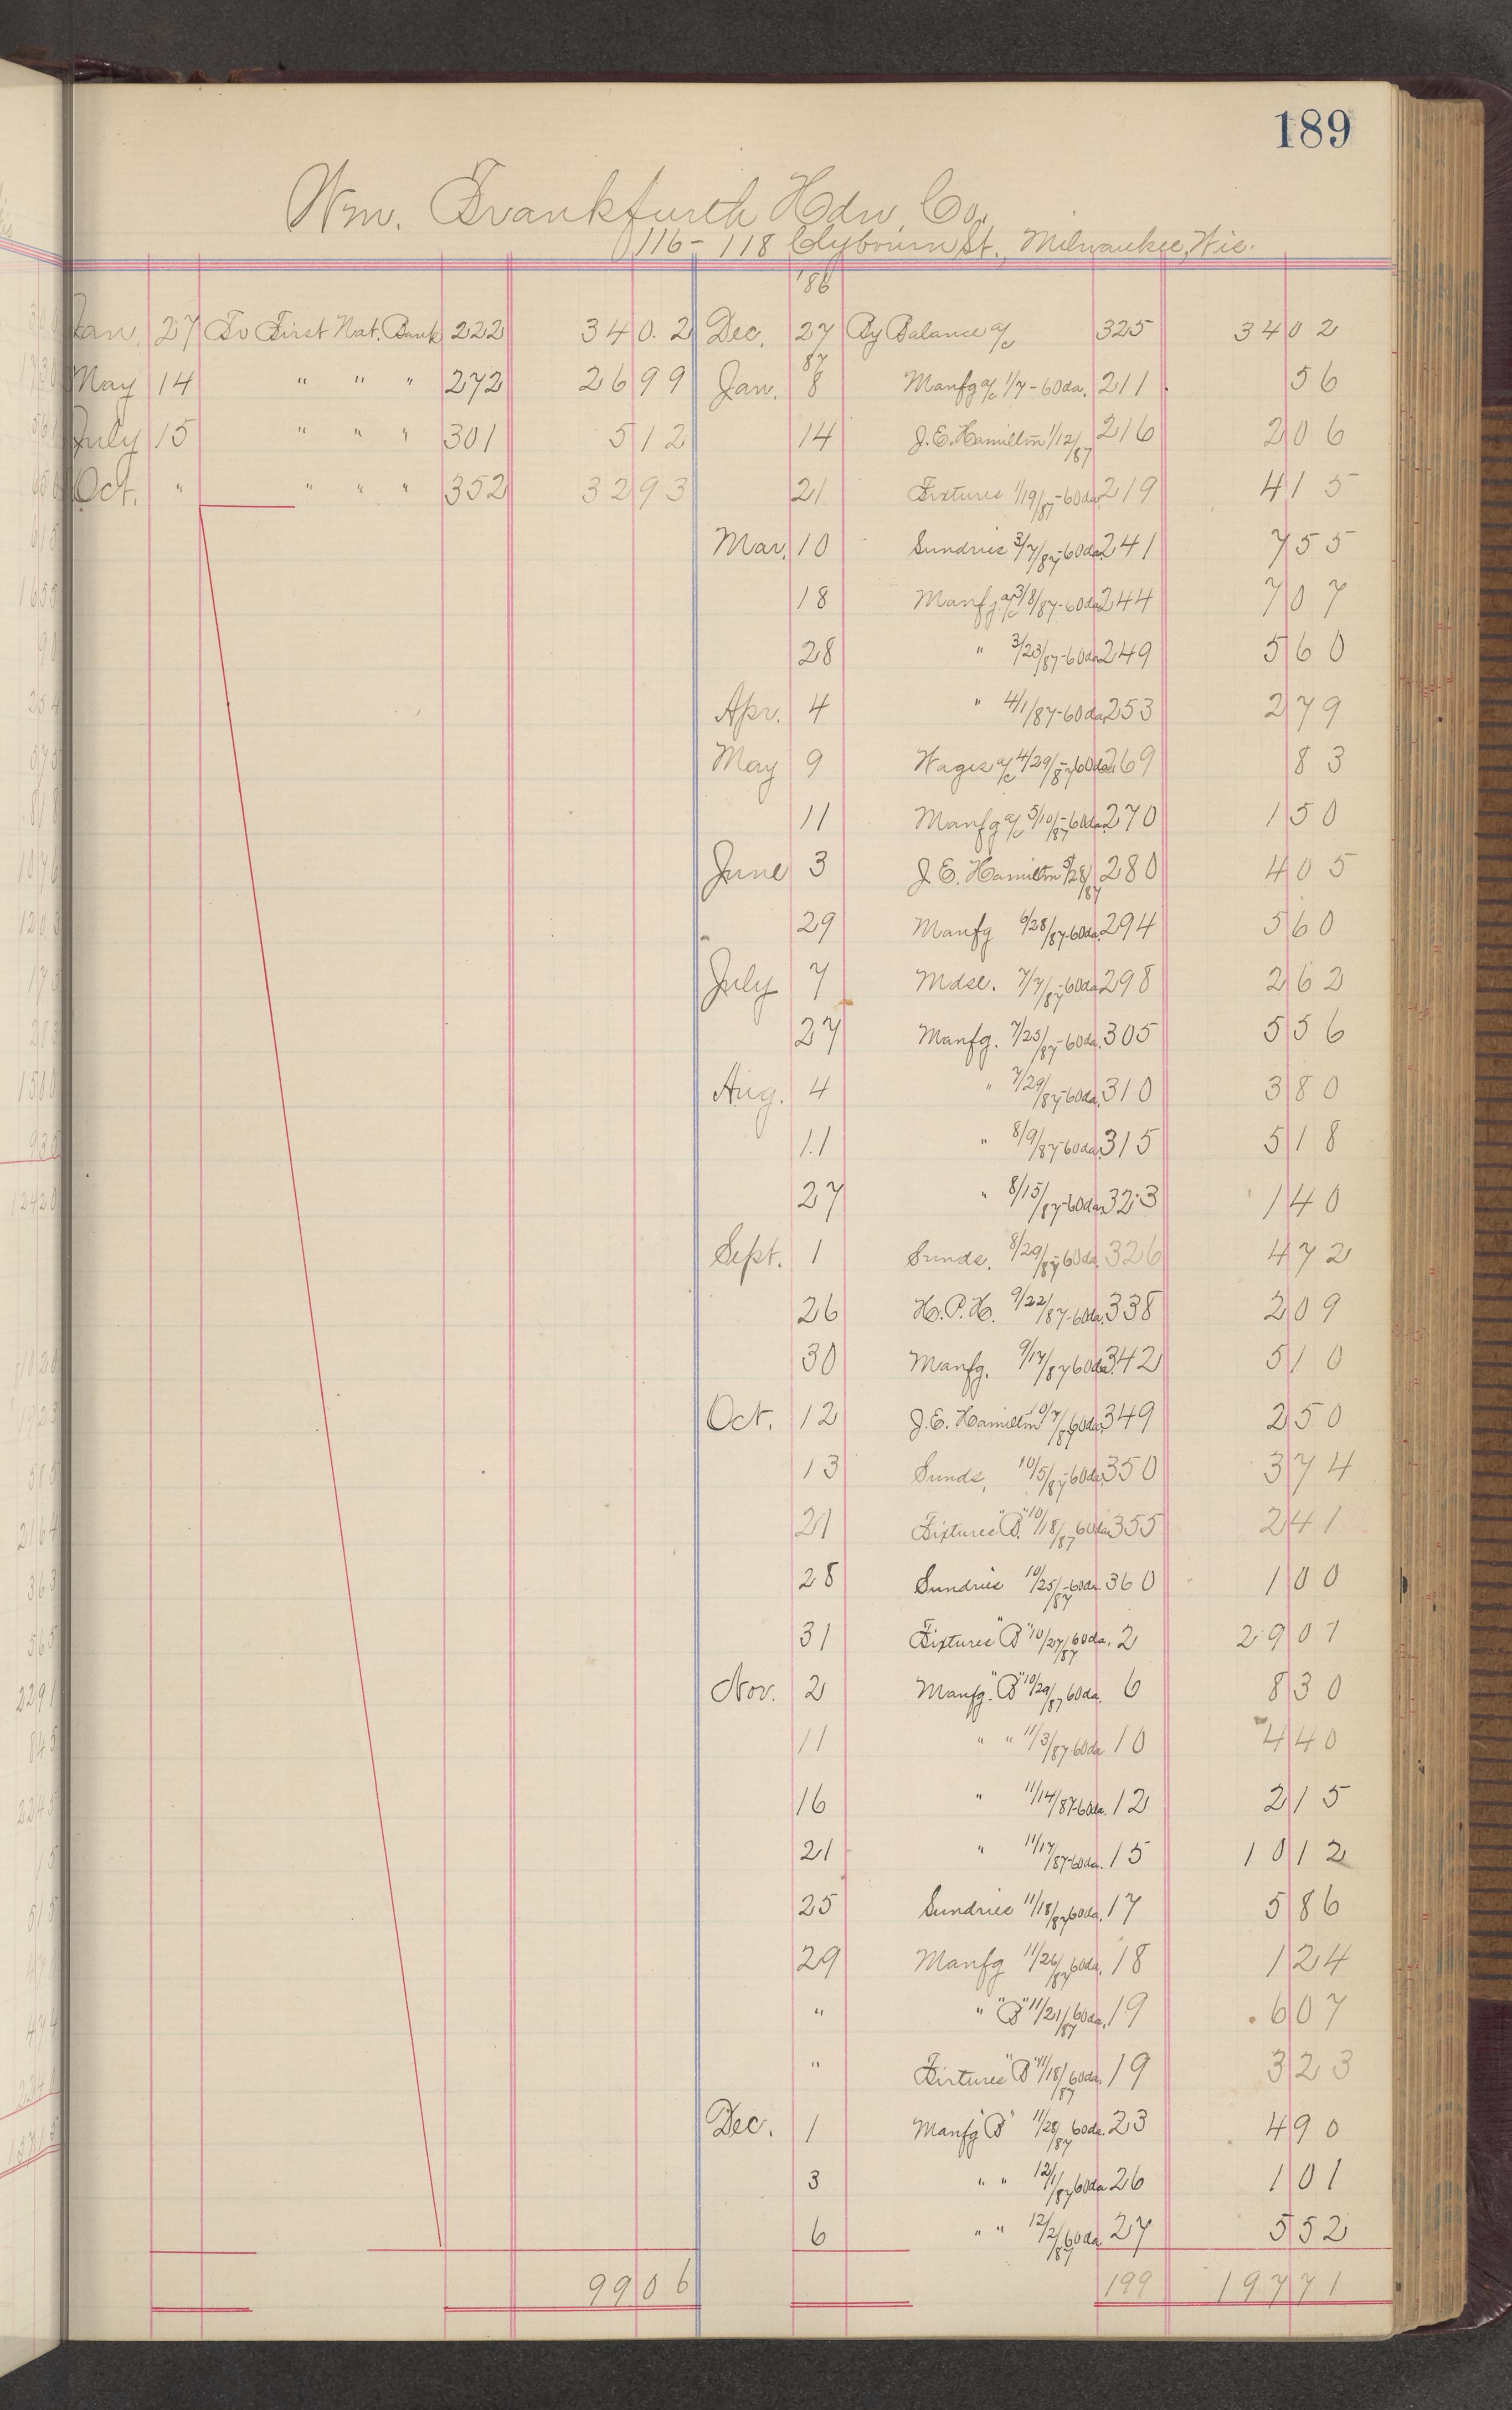 189
Wm. Frankfurth Hdw Co.
116 - 118 Clybourn St., Milwaukee, Wis.
'86
Jan. 27 To First Nat. Bank 222 34 0.2 Dec. 27 By Balance a/c 325 34 02
87
May 14 " " " 272 26 99 Jan. 8 Manfg a/c 1/7 - 60 da. 211 56
July 15 " " " 301 5 12 14 J. E. Hamilton 1/12/87 216 2 06
Oct. " " " " 352 32 93 21 Fixtures 1/19/87 - 60 da 219 4 15
Mar. 10 Sundries 3/7/87 - 60 da. 241 7 55
18 Manfg. a/c 3/8/87 - 60 da 244 7 07
28 " 3/23/87 - 60 da 249 5 60
Apr. 4 " 4/1/87 - 60 da 253 2 79
May 9 Wages a/c 4/29/87 - 60 da 269 83
11 Manfg a/c 5/10/87 - 60 da. 270 1 50
June 3 J. E. Hamilton 5/28/87 280 4 05
29 Manfg 6/28/87 - 60 da. 294 5 60
July 7 Mdse. 7/7/87 - 60 da 298 2 62
27 Manfg. 7/25/87 - 60 da. 305 5 56
Aug. 4 " 7/29/87 - 60 da. 310 3 80
11 " 8/9/87 60 da. 315 5 18
27 " 8/15/87 - 60 da. 323 1 40
Sept. 1 Sunds. 8/29/87 - 60 da. 326 4 72
26 H. P. H. 9/22/87 - 60 da. 338 2 09
30 Manfg. 9/17/87 60 da. 342 5 10
Oct. 12 J. E. Hamilton 10/7/87 60 da. 349 2 50
13 Sunds. 10/5/87 - 60 da. 350 3 74
21 Fixtures "B" 10/18/87 60 da 355 2 41
28 Sundries 10/25/87 - 60 da. 360 1 00
31 Fixtures "B" 10/27/87 60 da. 2 29 01
Nov. 2 Manfg. "B" 10/29/87 60 da. 6 8 30
11 " " 11/3/87 - 60 da 10 4 40
16 " 11/14/87 - 60 da. 12 2 15
21 " 11/17/87 - 60 da. 15 10 12
25 Sundries 11/18/87 60 da. 17 5 86
29 Manfg 11/26/87 60 da. 18 1 24
" " "B" 11/21/87 60 da. 19 6 07
" Fixtures "B" 11/18/87 60 da. 19 3 23
Dec. 1 Manfg "B" 11/28/87 60 da. 23 4 90
3 " " 12/1/87 60 da 26 1 01
6 " " 12/2/87 60 da 27 5 52
99 06 199 197 71